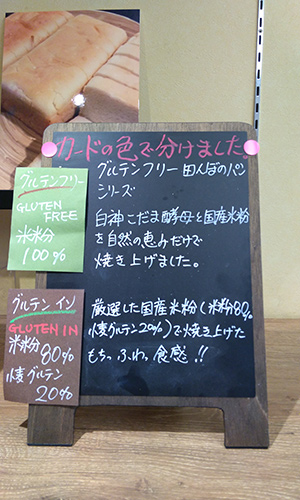 カードの色で分けました。
グルテンフリー
GLUTEN
FREE
米粉
100%
グルテンフリー田んぼのパン
シリーズ
白神こだま酵母と国産米粉
を自然の恵みだけで
焼き上げました。
グルテンイン
GLUTEN IN
米粉
80%
小麦グルテン
20%
厳選した国産米粉(米粉80%
小麦グルテン20%)で焼き上げた
もちっふわっ食感!!